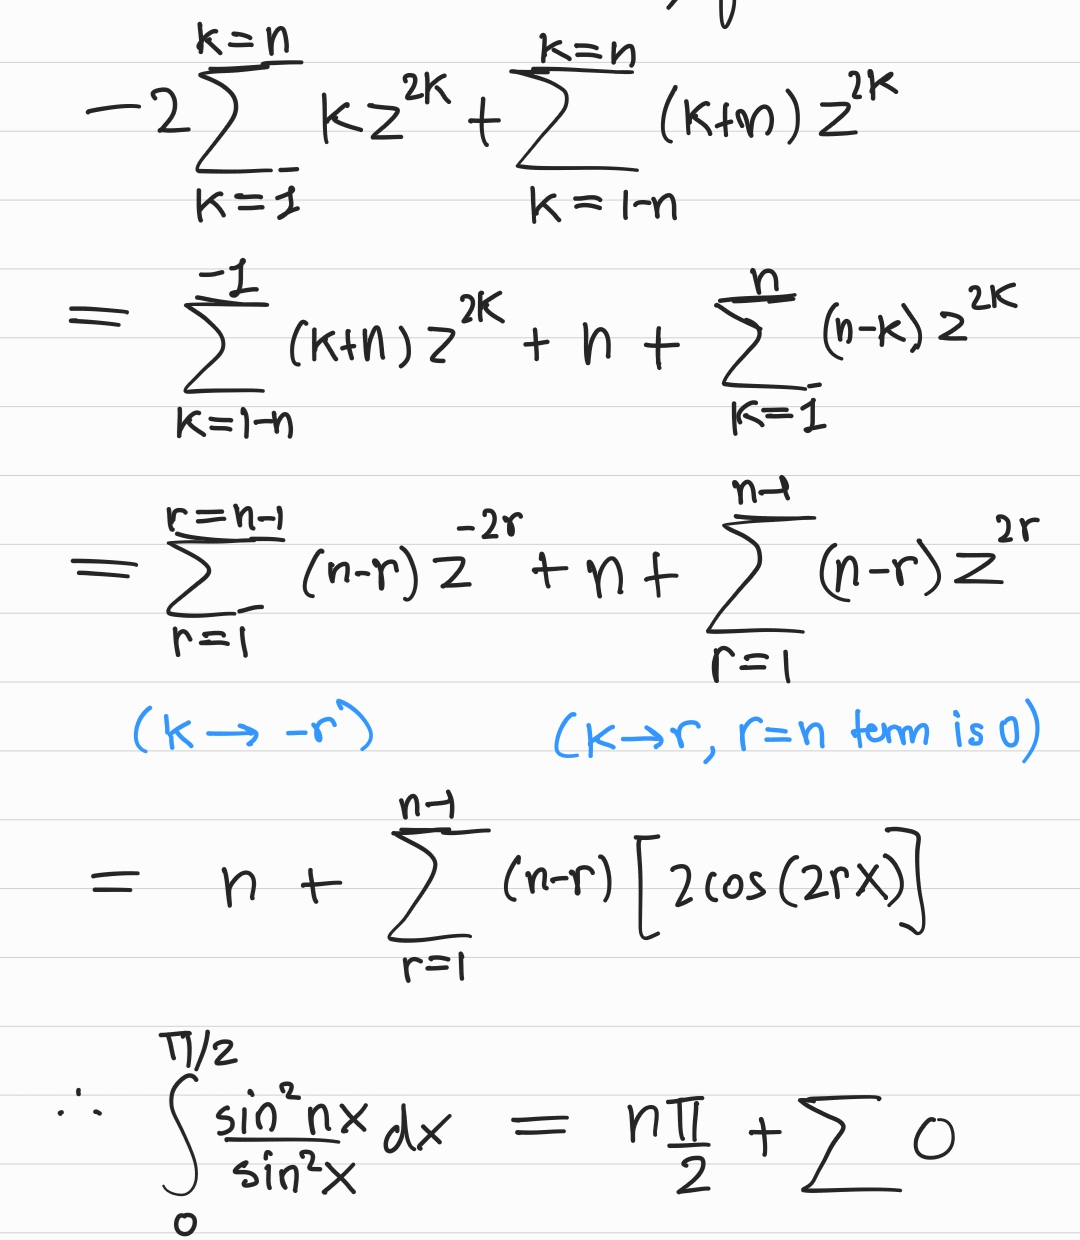 -2 \sum_{k=1}^{k=n} k z^{2k} + \sum_{k=1-n}^{k=n} (k+n) z^{2k}
= \sum_{k=1-n}^{-1} (k+n) z^{2k} + n + \sum_{k=1}^{n} (n-k) z^{2k}
= \sum_{r=1}^{r=n-1} (n-r) z^{-2r} + n + \sum_{r=1}^{n-1} (n-r) z^{2r}
(k → -r) (k→r, r=n term is 0)
= n + \sum_{r=1}^{n-1} (n-r) [2cos(2rx)]
∴ \int_{0}^{π/2} \frac{sin^2 nx}{sin^2 x} dx = \frac{nπ}{2} + \sum 0